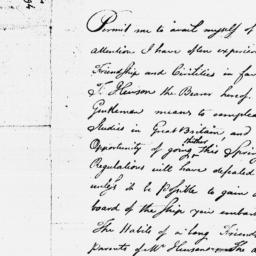 Permit me to avail myself of
Attention I have often experien
Friendship and Civilities in fav
T. Heuson the Bearer hereof.
Gentleman means to compleat
Studies in Great Britain and
thither
Opportunity of going this Spring
Regulations will have defeated
unless it be Possible to gain a
board of the Ship you embark
The Habits of a long Friends
parents of Mr Heuson